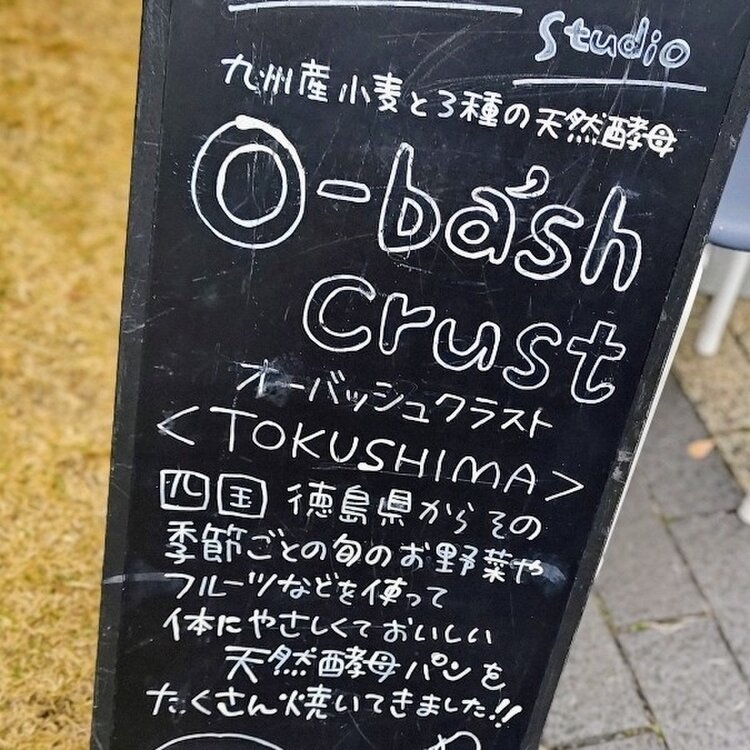 Studio
九州産小麦と3種の天然酵母
O-ba'sh
crust
オーバッシュクラスト
<TOKUSHIMA>
四国 徳島県からその
季節ごとの旬のお野菜や
フルーツなどを使って
体にやさしくておいしい
天然酵母パンを
たくさん焼いてきました!!